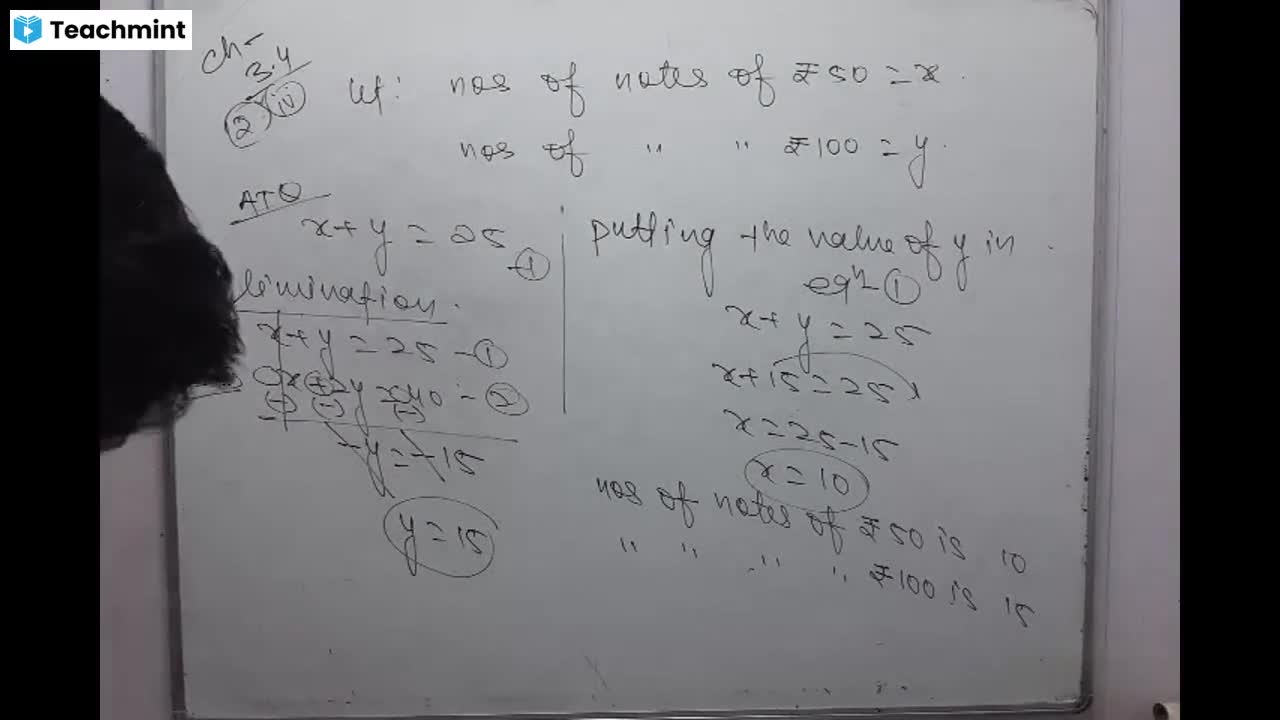 Teachmint
Ch-
3.4
2) iv
let: nos of notes of ₹50 = x.
nos of " " ₹100 = y.
ATQ
x+y = 25 -①
limination.
x+y = 25 -①
x+2y = 40 -②
(-) (-) (-)
-y = -15
y = 15
putting the value of y in.
eqn ①
x+y = 25
x+15 = 25
x = 25-15
x = 10
nos of notes of ₹50 is 10
" " " " ₹100 is 15